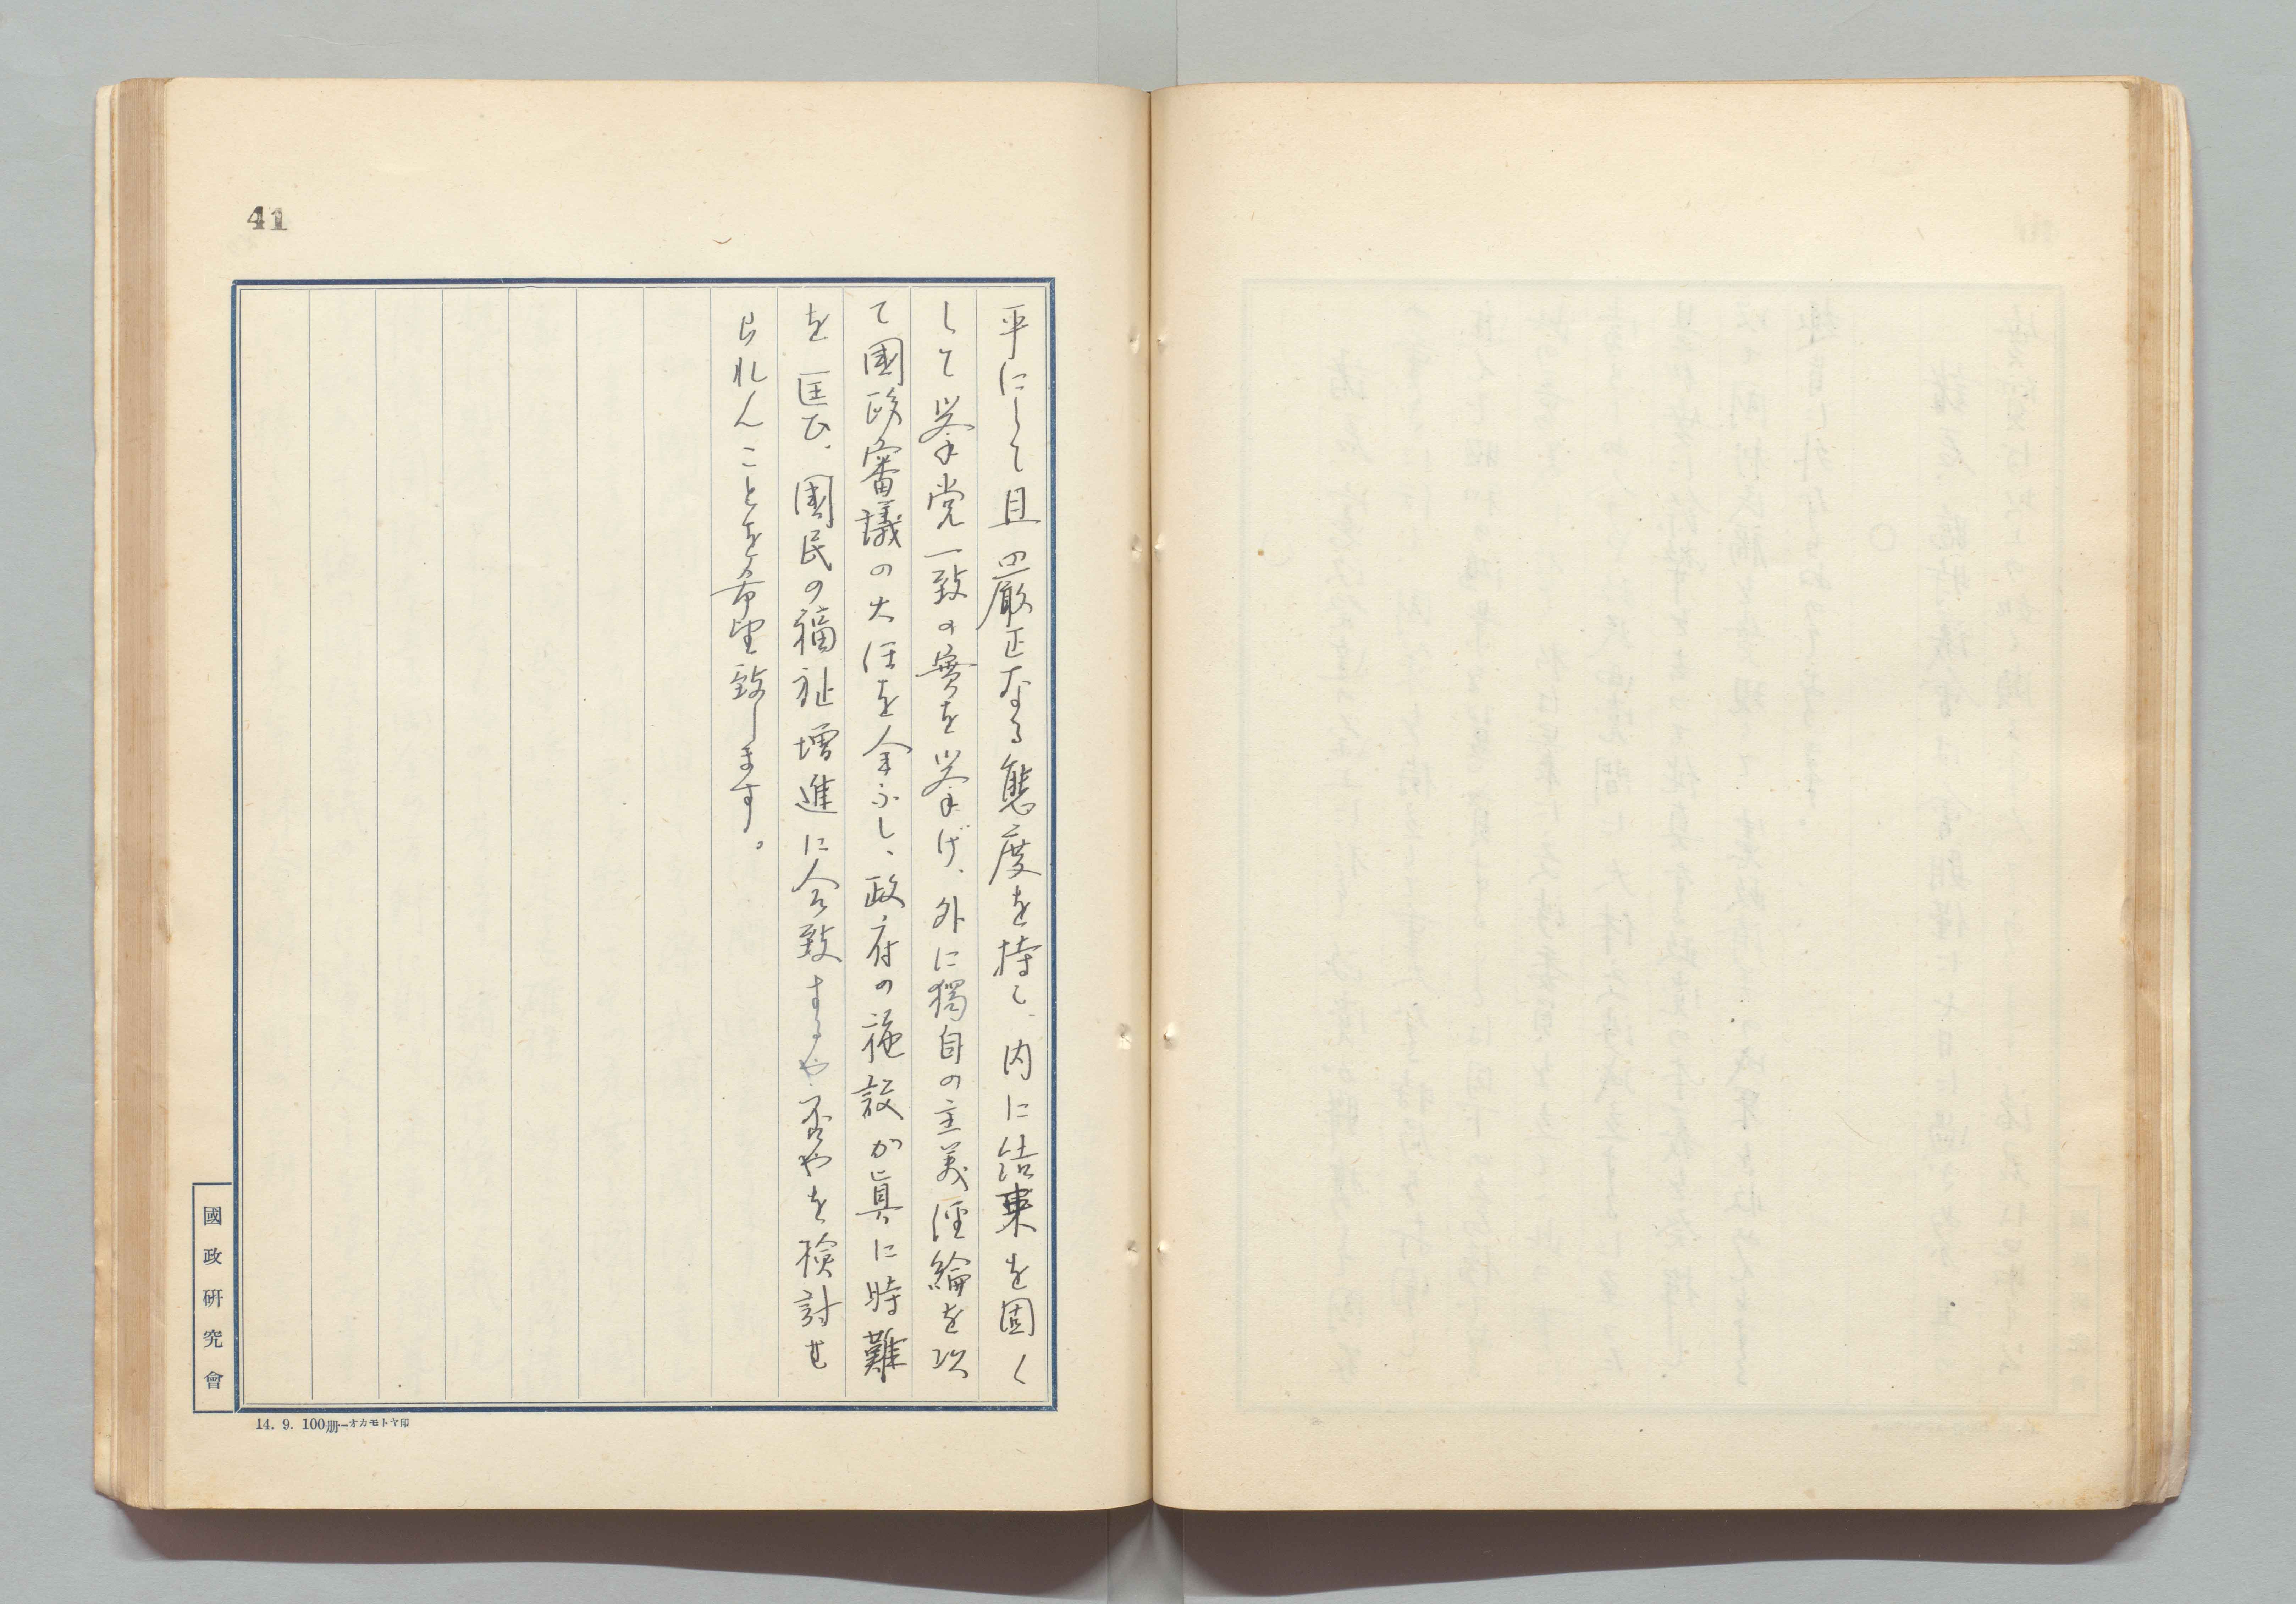 41
平にして且の厳正なる態度を持し、内に結束を固く
して挙党一致の實を挙げ、外に獨自の主義経綸を以
て國政審議の大任を全ふし、政府の施設が眞に時難
を匡ひ、國民の福祉増進に合致するや否やを検討せ
られんことを希望致します。
國政研究會
14. 9. 100册―オカモトヤ印